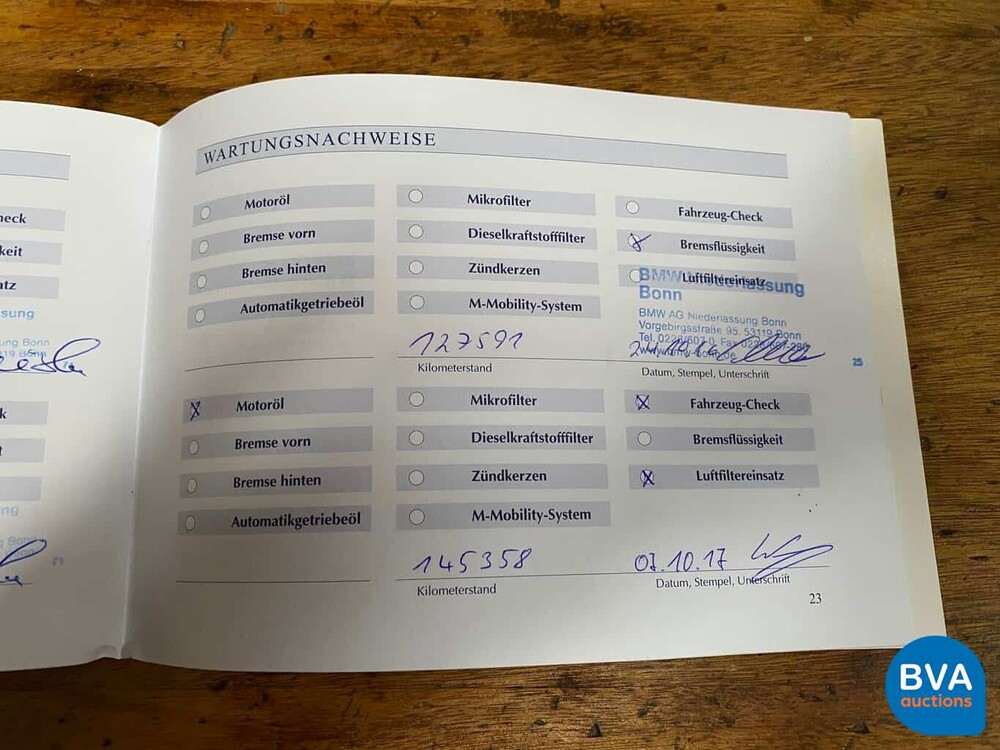 WARTUNGSNACHWEISE
Motoröl Mikrofilter Fahrzeug-Check
Bremse vorn Dieselkraftstofffilter Bremsflüssigkeit
Bremse hinten Zündkerzen Luftfiltereinsatz
Automatikgetriebeöl M-Mobility-System
BMW Niederlassung
Bonn
BMW AG Niederlassung Bonn
Vorgebirgsstraße 95, 53119 Bonn
Tel. 0228/607-0, Fax
127591
Kilometerstand Datum, Stempel, Unterschrift
25
Motoröl Mikrofilter Fahrzeug-Check
Bremse vorn Dieselkraftstofffilter Bremsflüssigkeit
Bremse hinten Zündkerzen Luftfiltereinsatz
Automatikgetriebeöl M-Mobility-System
145358 07.10.17
Kilometerstand Datum, Stempel, Unterschrift
23
heck
keit
tz
sung
Bonn
k
t
ng
BVA
auctions